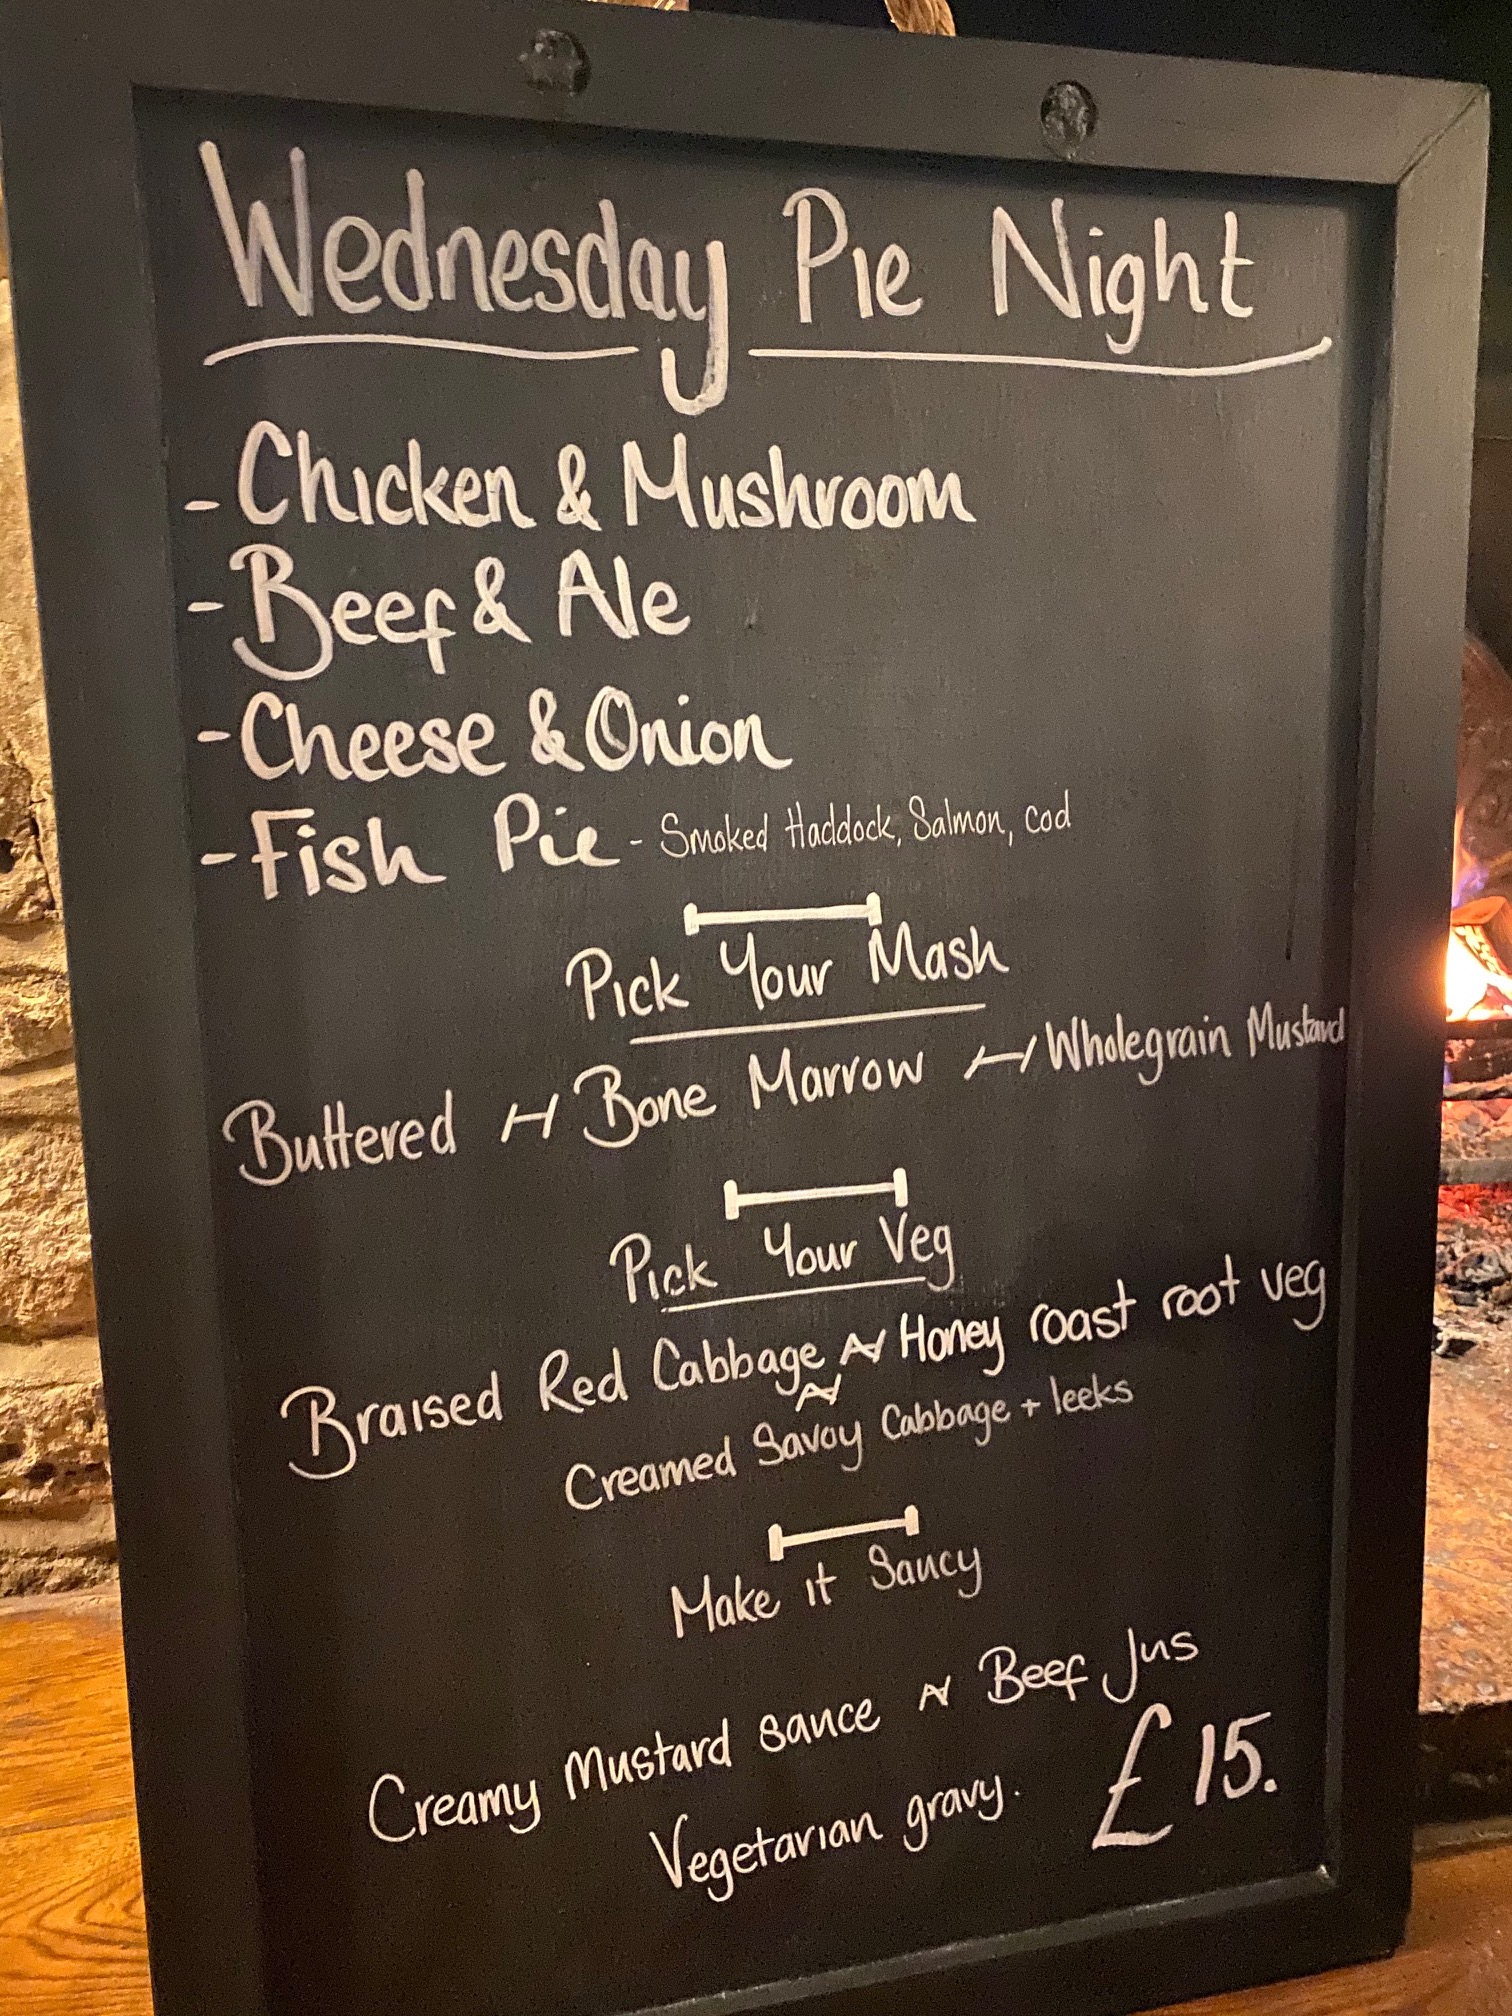 Wednesday Pie Night
- Chicken & Mushroom
- Beef & Ale
- Cheese & Onion
- Fish Pie - Smoked Haddock, Salmon, cod
Pick Your Mash
Buttered Bone Marrow Wholegrain Mustard
Pick Your Veg
Braised Red Cabbage Honey roast root veg
Creamed Savoy Cabbage + leeks
Make it Saucy
Creamy Mustard sauce Beef Jus
Vegetarian gravy. £15.